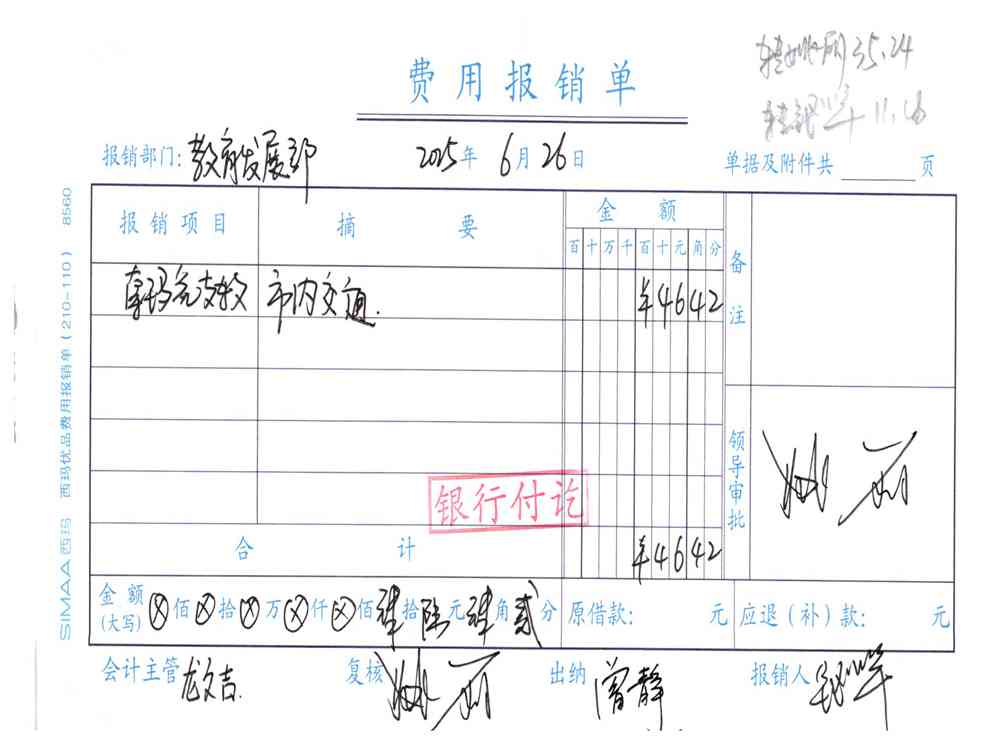 35.24
11.18
费用报销单
报销部门: 教育发展部 2025年 6月26日 单据及附件共 页
报销项目 摘要 金额 备注
百十万千百十元角分
市内交通. ¥4642
领导审批
银行付讫
合计 ¥4642
金额(大写) ⊗佰⊗拾⊗万⊗仟⊗佰肆拾陆元肆角贰分 原借款: 元 应退(补)款: 元
会计主管 龙文吉. 复核 姚丽 出纳 曾静 报销人
SIMAA西玛 西玛优品费用报销单(210-110) 8560